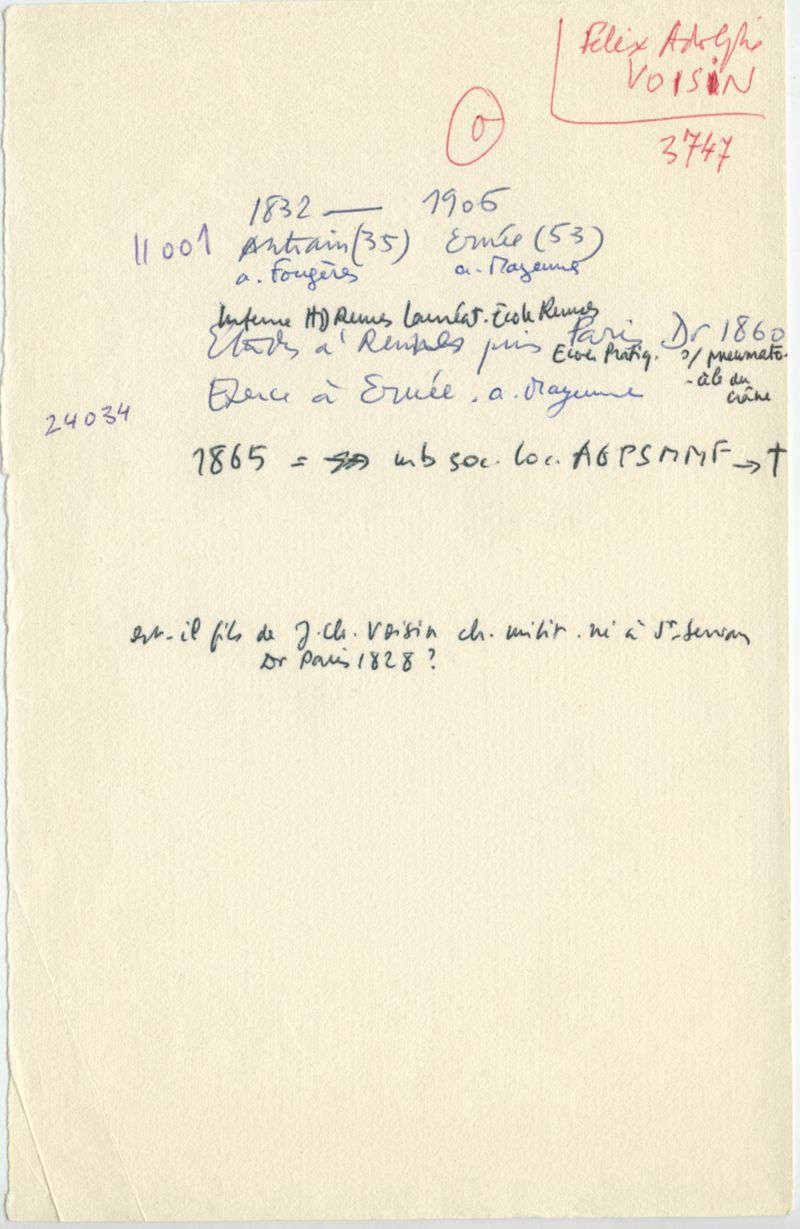 Félix Adolphe
VOISIN
0
3747
1832 — 1906
11001 Antrain (35) Ernée (53)
a. Fougères a. Mayenne
Interne HD Rennes Lauréat. Ecole Rennes
Etudes à Rennes puis Paris Dr 1860
Ecole Pratiq. s/ pneumato-
-cèle du
crâne
Exerce à Ernée . a. Mayenne
24034
1865 = mb soc. loc. AGPSMMF → †
est-il fils de J. Ch. Voisin ch. milit. né à St-Servan
Dr Paris 1828 ?